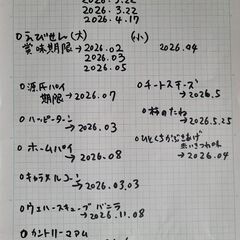 2026.3.22
2026.4.17
○えびせん(大) (小)
賞味期限→2026.02 2026.04
2026.03
2026.05
○源氏パイ
期限→2026.07
○チートスチーズ
→2026.5
○ハッピーターン
→2026.03
○柿のたね
→2026.5.25
○ホームパイ
→2026.08
○ひとくちかぶきあげ
→2026.04
○キャラメルコーン
→2026.03.03
○ウェハースキューブバニラ
→2026.11.08
○カントリーマアム